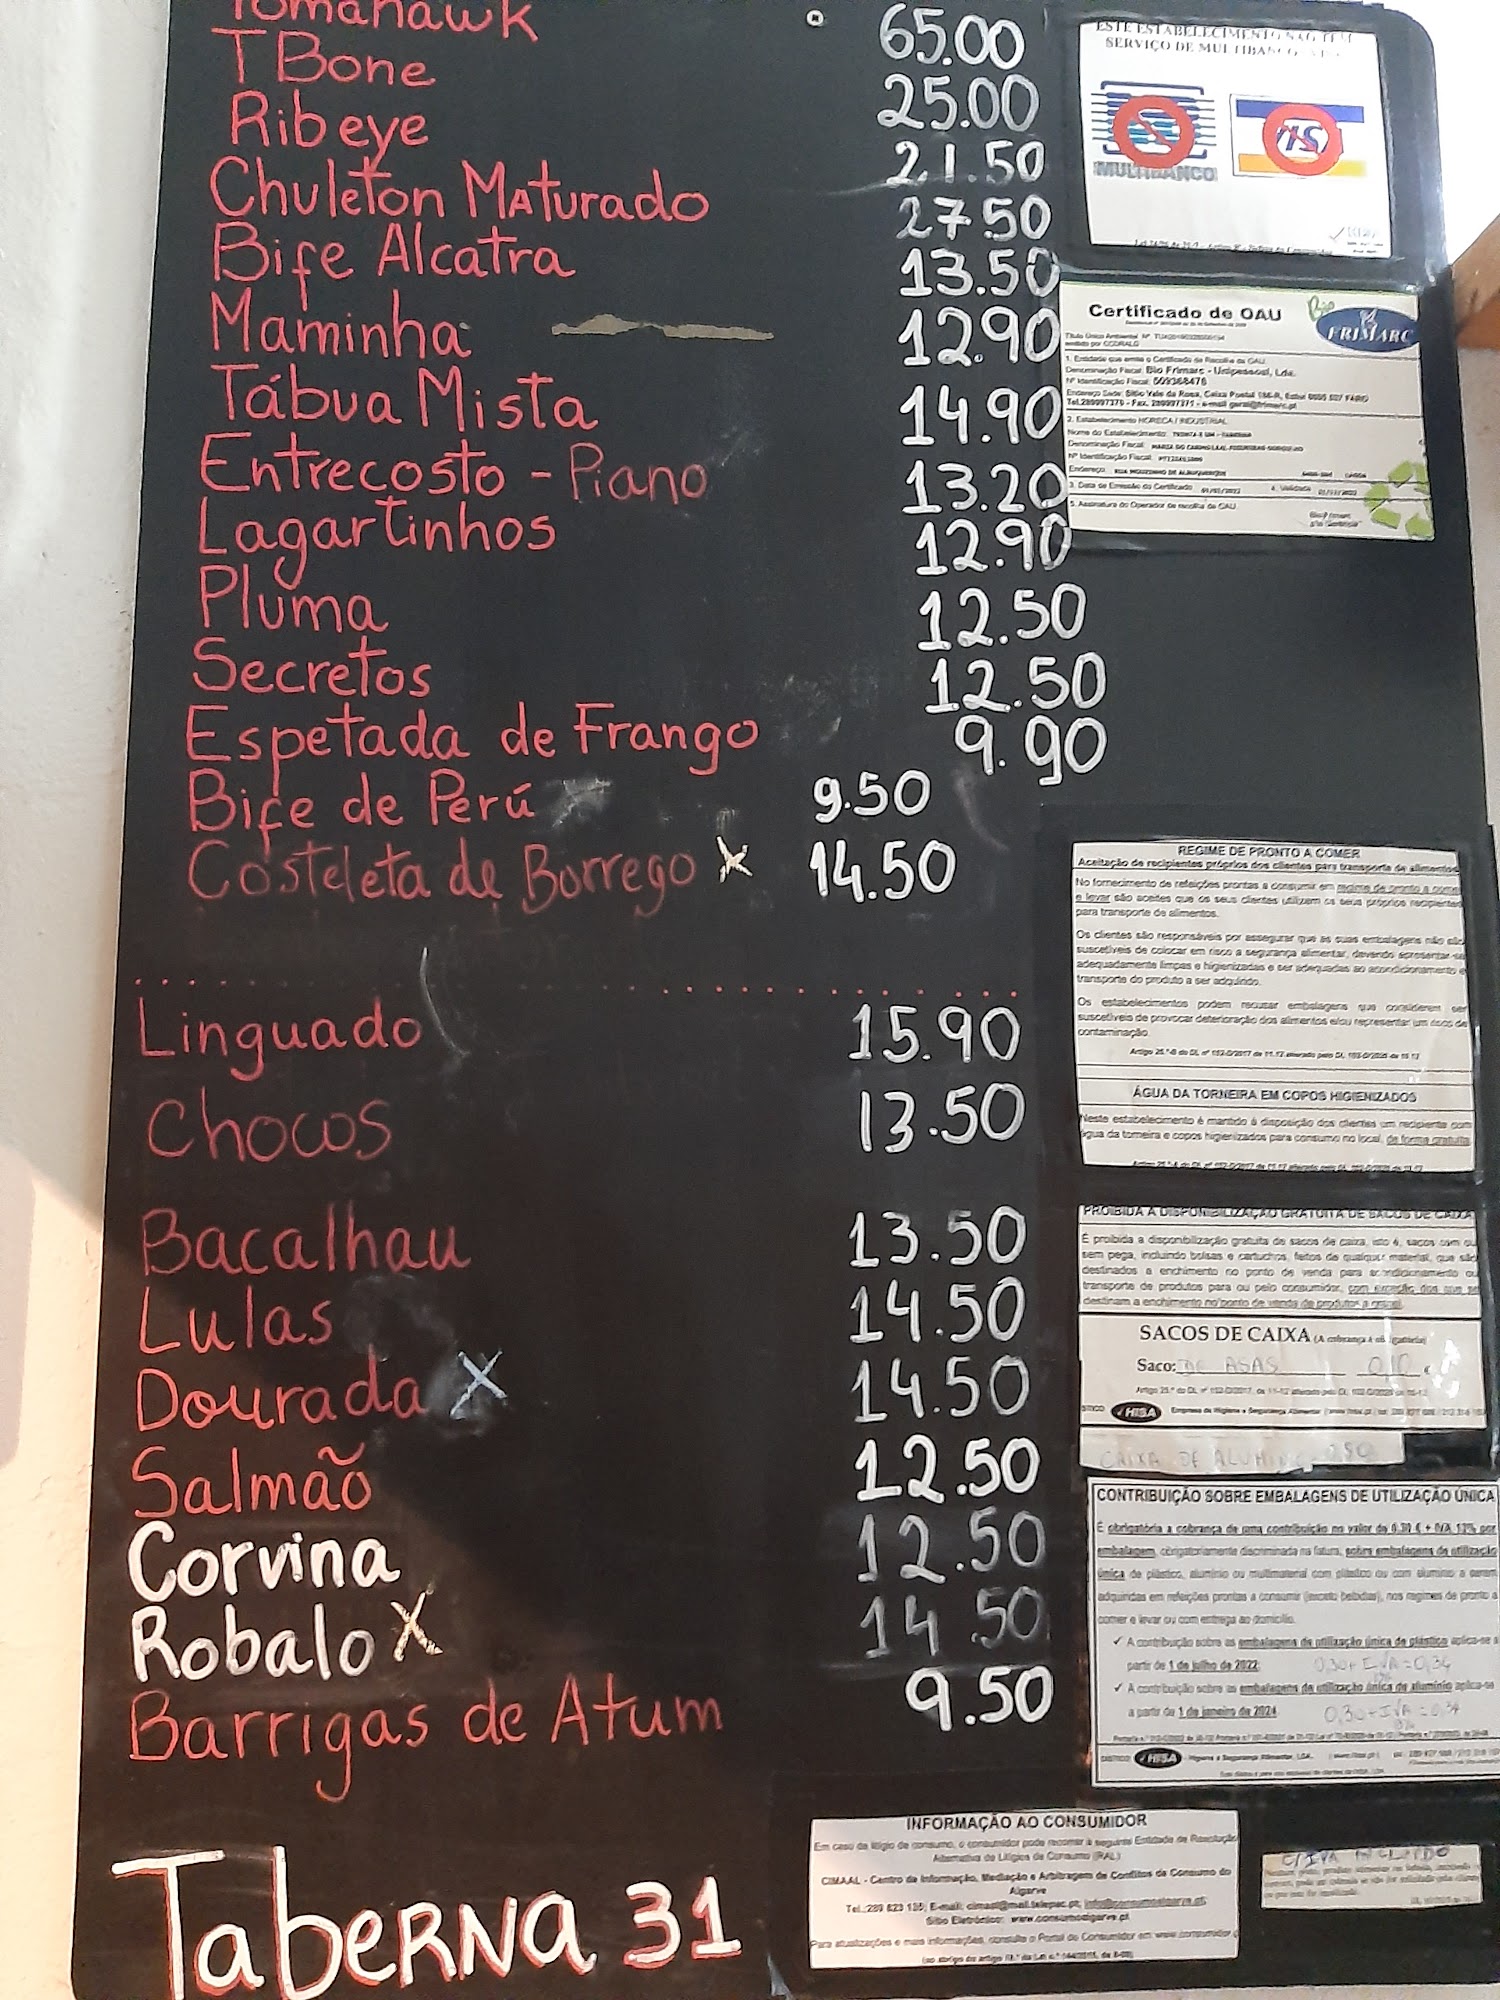 Tomahawk 65.00
T Bone 25.00
Ribeye 21.50
Chuleton Maturado 27.50
Bife Alcatra 13.50
Maminha 12.90
Tábua Mista 14.90
Entrecosto - Piano 13.20
Lagartinhos 12.90
Pluma 12.50
Secretos 12.50
Espetada de Frango 9.90
Bife de Perú 9.50
Costeleta de Borrego X 14.50
Linguado 15.90
Chocos 13.50
Bacalhau 13.50
Lulas 14.50
Dourada X 14.50
Salmão 12.50
Corvina 12.50
Robalo X 14.50
Barrigas de Atum 9.50
Taberna 31
ESTE ESTABELECIMENTO NÃO TEM
SERVIÇO DE MULTIBANCO
MULTIBANCO
VIS
Certificado de OAU
Bio
FRIMARC
1. Entidade que emite o Certificado de Recolha de OAU
Denominação Fiscal: Bio Frimarc - Unipessoal, Lda.
Nº Identificação Fiscal: 509368476
2. Estabelecimento HORECA / INDUSTRIAL
3. Data de Emissão do Certificado
5. Assinatura do Operador de recolha de OAU
REGIME DE PRONTO A COMER
Aceitação de recipientes próprios dos clientes para transporte de alimentos
No fornecimento de refeições prontas a consumir em regime de pronto a comer
e levar são aceites que os seus clientes utilizem os seus próprios recipientes
para transporte de alimentos.
Os clientes são responsáveis por assegurar que as suas embalagens não são
suscetíveis de colocar em risco a segurança alimentar, devendo apresentar-se
adequadamente limpas e higienizadas e ser adequadas ao acondicionamento e
transporte do produto a ser adquirido.
Os estabelecimentos podem recusar embalagens que considerem ser
suscetíveis de provocar deterioração dos alimentos e/ou representar um risco de
contaminação.
ÁGUA DA TORNEIRA EM COPOS HIGIENIZADOS
Neste estabelecimento é mantido à disposição dos clientes um recipiente com
água da torneira e copos higienizados para consumo no local, de forma gratuita
PROIBIDA A DISPONIBILIZAÇÃO GRATUITA DE SACOS DE CAIXA
É proibida a disponibilização gratuita de sacos de caixa, isto é, sacos com ou
sem pega, incluindo bolsas e cartuchos, feitos de qualquer material, que são
destinados a enchimento no ponto de venda para acondicionamento ou
transporte de produtos para ou pelo consumidor, com exceção dos que se
destinam a enchimento no ponto de venda de produtos a granel.
SACOS DE CAIXA (A cobrança é obrigatória)
Saco: DE ASAS 0,10 €
HISA
CAIXA DE ALUMINIO 0,50
CONTRIBUIÇÃO SOBRE EMBALAGENS DE UTILIZAÇÃO ÚNICA
É obrigatória a cobrança de uma contribuição no valor de 0.30 € + IVA 13% por
embalagem, obrigatoriamente discriminada na fatura, sobre embalagens de utilização
única de plástico, alumínio ou multimaterial com plástico ou com alumínio a serem
adquiridas em refeições prontas a consumir (exceto bebidas), nos regimes de pronto a
comer e levar ou com entrega ao domicílio.
✓ A contribuição sobre as embalagens de utilização única de plástico aplica-se a
partir de 1 de julho de 2022 0,30 + IVA = 0,34
✓ A contribuição sobre as embalagens de utilização única de alumínio aplica-se
a partir de 1 de janeiro de 2024 0,30 + IVA = 0,34
HISA
INFORMAÇÃO AO CONSUMIDOR
Em caso de litígio de consumo, o consumidor pode recorrer à seguinte Entidade de Resolução
Alternativa de Litígios de Consumo (RAL)
CIMAAL - Centro de Informação, Mediação e Arbitragem de Conflitos de Consumo do
Algarve
Para atualizações e mais informações, consulte o Portal do Consumidor em www.consumidor
C/IVA INCLUIDO